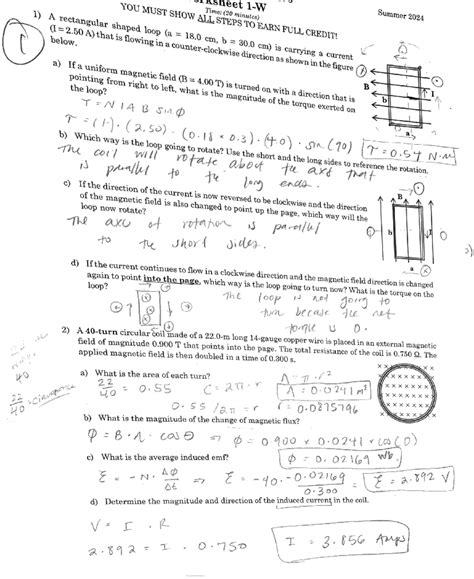 rksheet 1-W
Time: (20 minutes)
Summer 2024
YOU MUST SHOW ALL STEPS TO EARN FULL CREDIT!
1) A rectangular shaped loop (a = 18.0 cm, b = 30.0 cm) is carrying a current
(I = 2.50 A) that is flowing in a counter-clockwise direction as shown in the figure
below.
a) If a uniform magnetic field (B = 4.00 T) is turned on with a direction that is
pointing from right to left, what is the magnitude of the torque exerted on
the loop?
τ = N I A B sin Ø
τ = (1) · (2.50) · (0.18 × 0.3) · (4.0) · sin (90)
τ = 0.54 N·m
B
b
I
a
b) Which way is the loop going to rotate? Use the short and the long sides to reference the rotation.
The coil will rotate about the axis that
is parallel to the long ends.
c) If the direction of the current is now reversed to be clockwise and the direction
of the magnetic field is also changed to point up the page, which way will the
loop now rotate?
The axe of rotation is parallel
to the short sides.
B
b
I
a
d) If the current continues to flow in a clockwise direction and the magnetic field direction is changed
again to point into the page, which way is the loop going to turn now? What is the torque on the
loop?
The loop is not going to
turn because the net
torque is 0.
2) A 40-turn circular coil made of a 22.0-m long 14-gauge copper wire is placed in an external magnetic
field of magnitude 0.900 T that points into the page. The total resistance of the coil is 0.750 Ω. The
applied magnetic field is then doubled in a time of 0.300 s.
40
22/40 = circumference
a) What is the area of each turn?
22/40 = 0.55
C = 2π · r
A = π · r²
A = 0.0241 m²
0.55/2π = r
r = 0.0875796
b) What is the magnitude of the change of magnetic flux?
Φ = B · A · cos Θ ⇒ Φ = 0.900 × 0.0241 × cos (0)
Φ = 0.02169 Wb
c) What is the average induced emf?
ε = -N · ΔΦ/Δt ⇒ ε = -40 · -0.02169/0.300 = ε = 2.892 V
d) Determine the magnitude and direction of the induced current in the coil.
V = I · R
2.892 = I · 0.750
I = 3.856 Amps